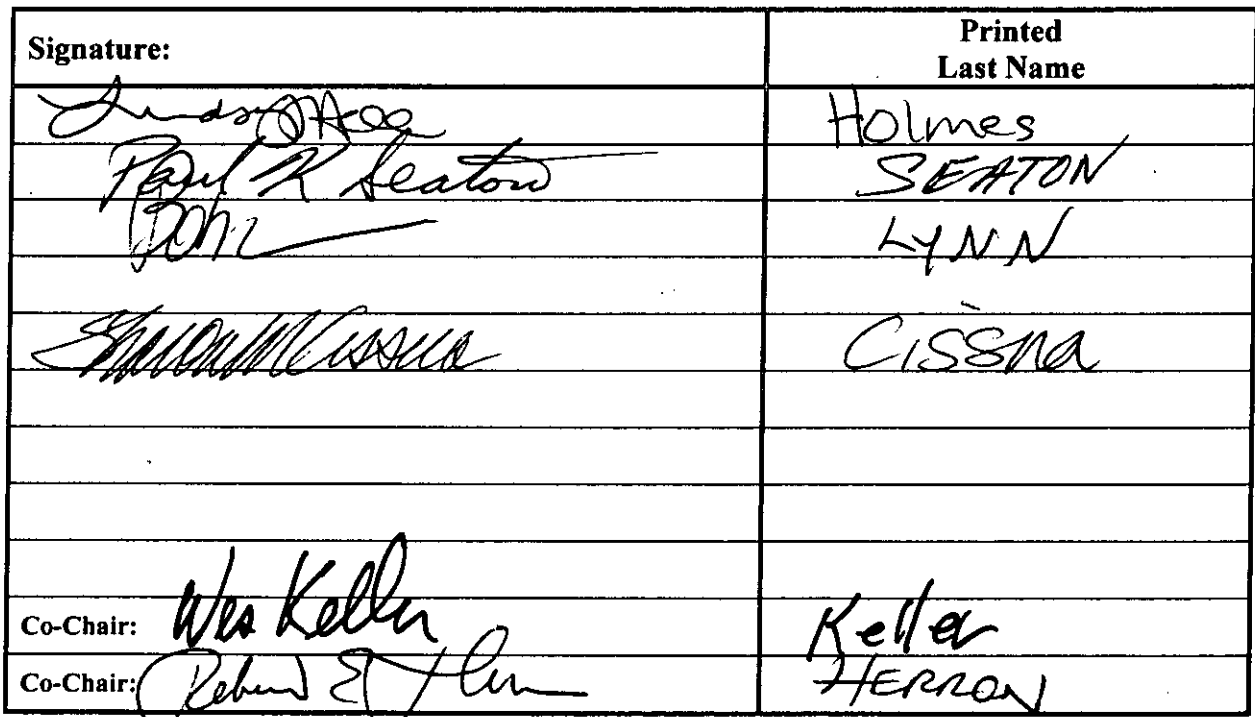 Signature: Printed Last Name
Lindsey Holmes
Paul K Seaton SEATON
LYNN
Sharon M Cissna Cissna
Co-Chair: Wes Keller Keller
Co-Chair: HERRON